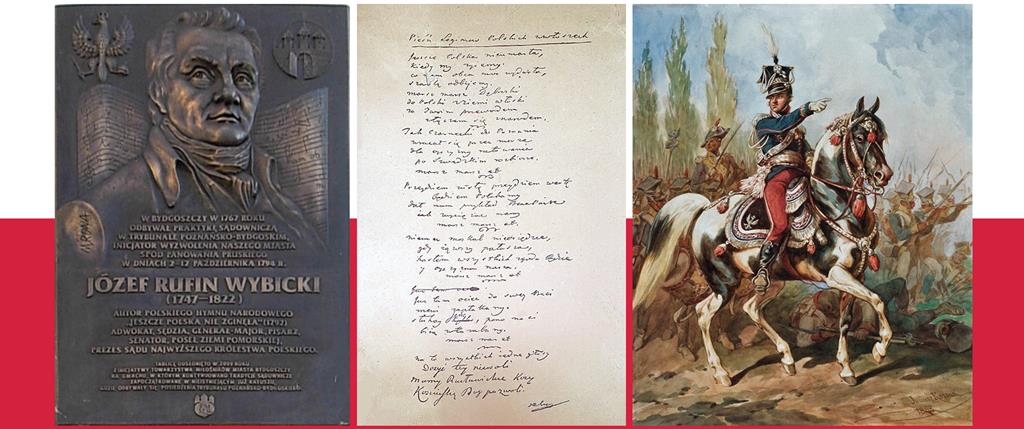 W BYDGOSZCZY W 1767 ROKU
ODBYWAŁ PRAKTYKĘ SĄDOWNICZĄ
W TRYBUNALE POZNAŃSKO-BYDGOSKIM,
INICJATOR WYZWOLENIA NASZEGO MIASTA
SPOD PANOWANIA PRUSKIEGO
W DNIACH 2-12 PAŹDZIERNIKA 1794 R.
JÓZEF RUFIN WYBICKI
(1747-1822)
AUTOR POLSKIEGO HYMNU NARODOWEGO
"JESZCZE POLSKA NIE ZGINĘŁA"(1797)
ADWOKAT, SĘDZIA, GENERAŁ-MAJOR, PISARZ,
SENATOR, POSEŁ ZIEMI POMORSKIEJ,
PREZES SĄDU NAJWYŻSZEGO KRÓLESTWA POLSKIEGO.
TABLICĘ ODSŁONIĘTO W 2009 ROKU
Z INICJATYWY TOWARZYSTWA MIŁOŚNIKÓW MIASTA BYDGOSZCZY
NA GMACHU, W KTÓRYM KONTYNUOWANO TRADYCJE SĄDOWNICZE
ZAPOCZĄTKOWANE W NIEISTNIEJĄCYM JUŻ RATUSZU,
GDZIE ODBYWAŁY SIĘ POSIEDZENIA TRYBUNAŁU
Pieśń Legionów Polskich we Włoszech
Jeszcze Polska nie umarła,
kiedy my żyjemy.
co nam obca moc wydarła,
szablą odbijemy.
marsz marsz Dąbrowski
do Polski z ziemi włoski
za twoim przewodem
złączem się z narodem.
Jak Czarnecki do Poznania
wracał się przez morze
dla ojczyzny ratowania
po szwedzkim rozbiorze.
marsz marsz
Przejdziem Wisłę przejdziem Wartę
będziem Polakami
dał nam przykład Bonaparte
jak zwyciężać mamy
marsz marsz
niemiec moskal nie osiędzie,
gdy jąwszy pałasza,
hasłem wszystkich zgoda będzie
y ojczyzna nasza.
marsz marsz
Już tam ociec do swej Basi
mówi zapłakany
słuchaj jeno, pono nasi
biją w tarabany.
marsz marsz
Na to wszystkich jedne głosy
Dosyć tej niewoli
Mamy Racławickie Kosy
Kościuszkę Bóg pozwoli.